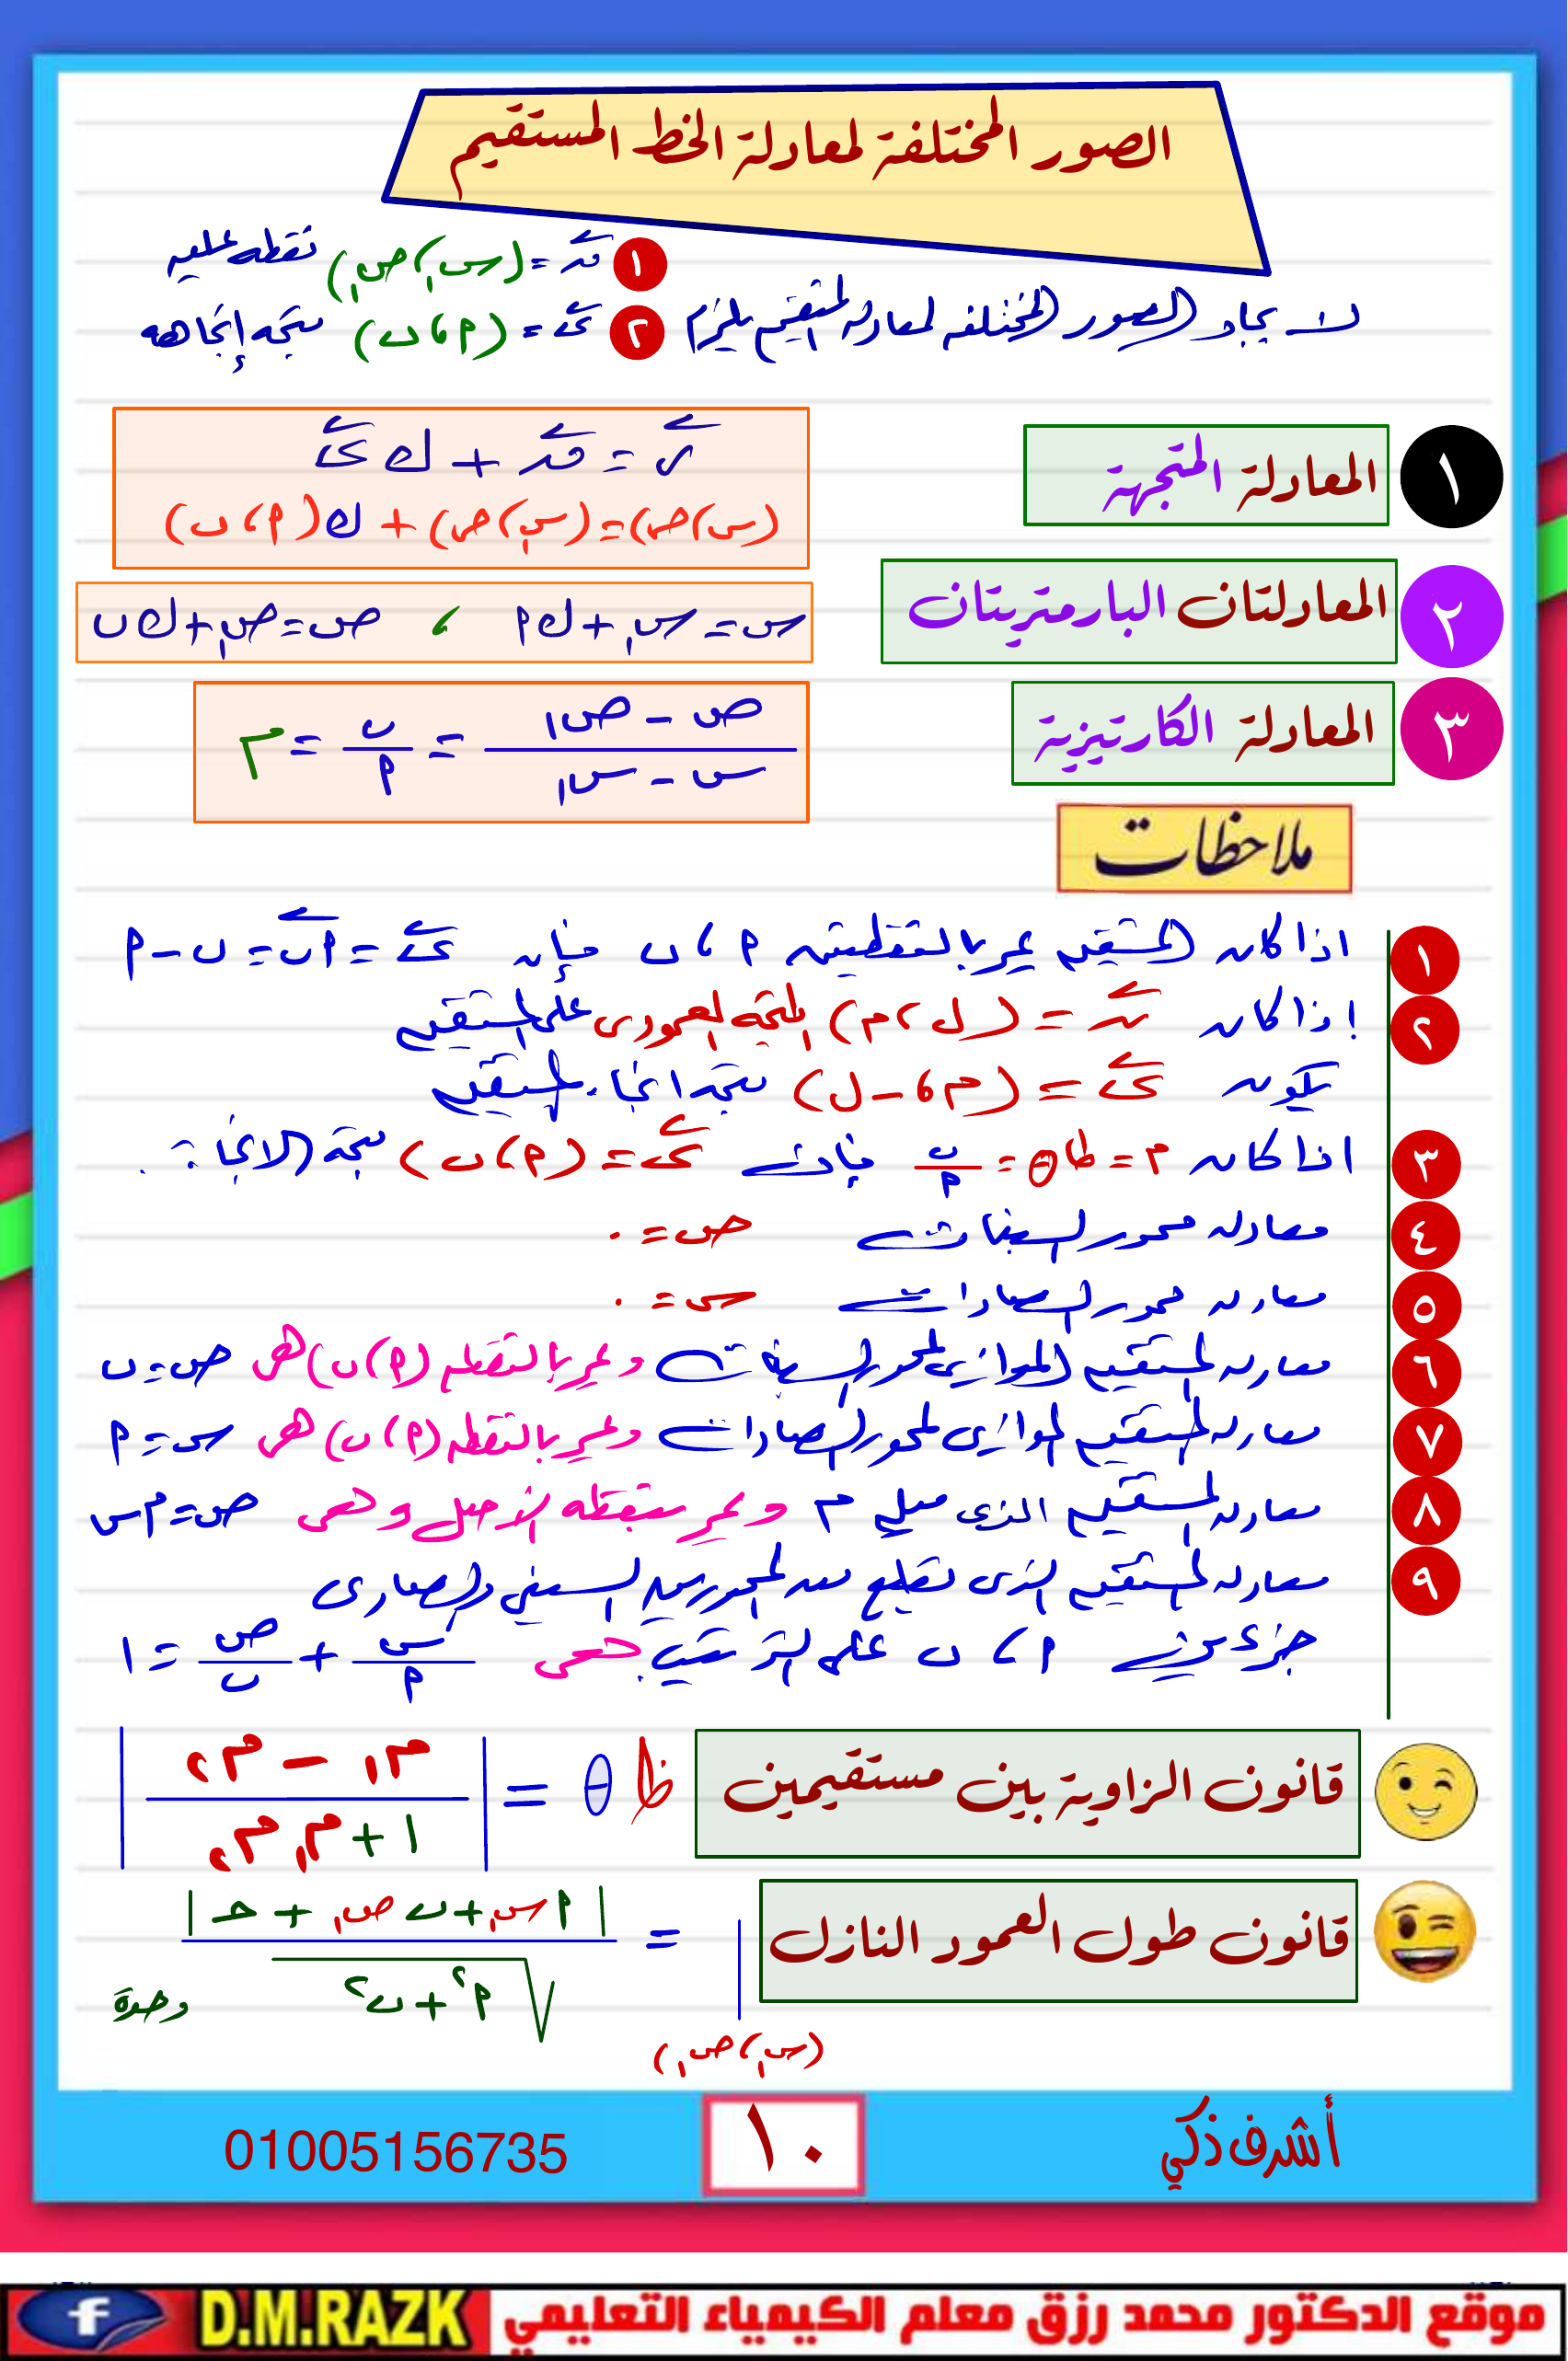 الصور المختلفة لمعادلة الخط المستقيم
لايجاد الصور المختلفه لمعادله المستقيم يلزم
١ نَ = (س₁، ص₁) نقطه عليه
٢ ىَ = (أ، ب) متجه إتجاهه
١ المعادلة المتجهة
رَ = نَ + ك ىَ
(س، ص) = (س₁، ص₁) + ك (أ، ب)
٢ المعادلتان البارمتريتان
س = س₁ + ك أ ، ص = ص₁ + ك ب
٣ المعادلة الكارتيزية
(ص - ص₁)/(س - س₁) = ب/أ = م
ملاحظات
١ اذا كان المستقيم يمر بالنقطتين أ، ب فإن ىَ = أبَ = ب - أ
٢ إذا كان نَ = (ل، م) المتجه العمودى على المستقيم
يكون ىَ = (م، -ل) متجه اتجاه المستقيم
٣ اذا كان م = طا θ = ب/أ فإن ىَ = (أ، ب) متجة الاتجاة.
٤ معادله محور السينات ص = ٠
٥ معادله محور الصادات س = ٠
٦ معادله المستقيم الموازى لمحور السينات ويمر بالنقطه (أ، ب) هى ص = ب
٧ معادله المستقيم الموازى لمحور الصادات ويمر بالنقطه (أ، ب) هى س = أ
٨ معادله المستقيم الذى ميله م ويمر بنقطه الأصل وهى ص = م س
٩ معادله المستقيم الذى يقطع من المحورين السينى والصادى
جزءين أ، ب على الترتيب هى س/أ + ص/ب = ١
قانون الزاوية بين مستقيمين
ظا θ = | (م₁ - م₂)/(١ + م₁ م₂) |
قانون طول العمود النازل
= |أ س₁ + ب ص₁ + حـ| / √(أ² + ب²) وحدة
(س₁، ص₁)
أشرف ذكي
١٠
01005156735
موقع الدكتور محمد رزق معلم الكيمياء التعليمي
D.M.RAZK
f